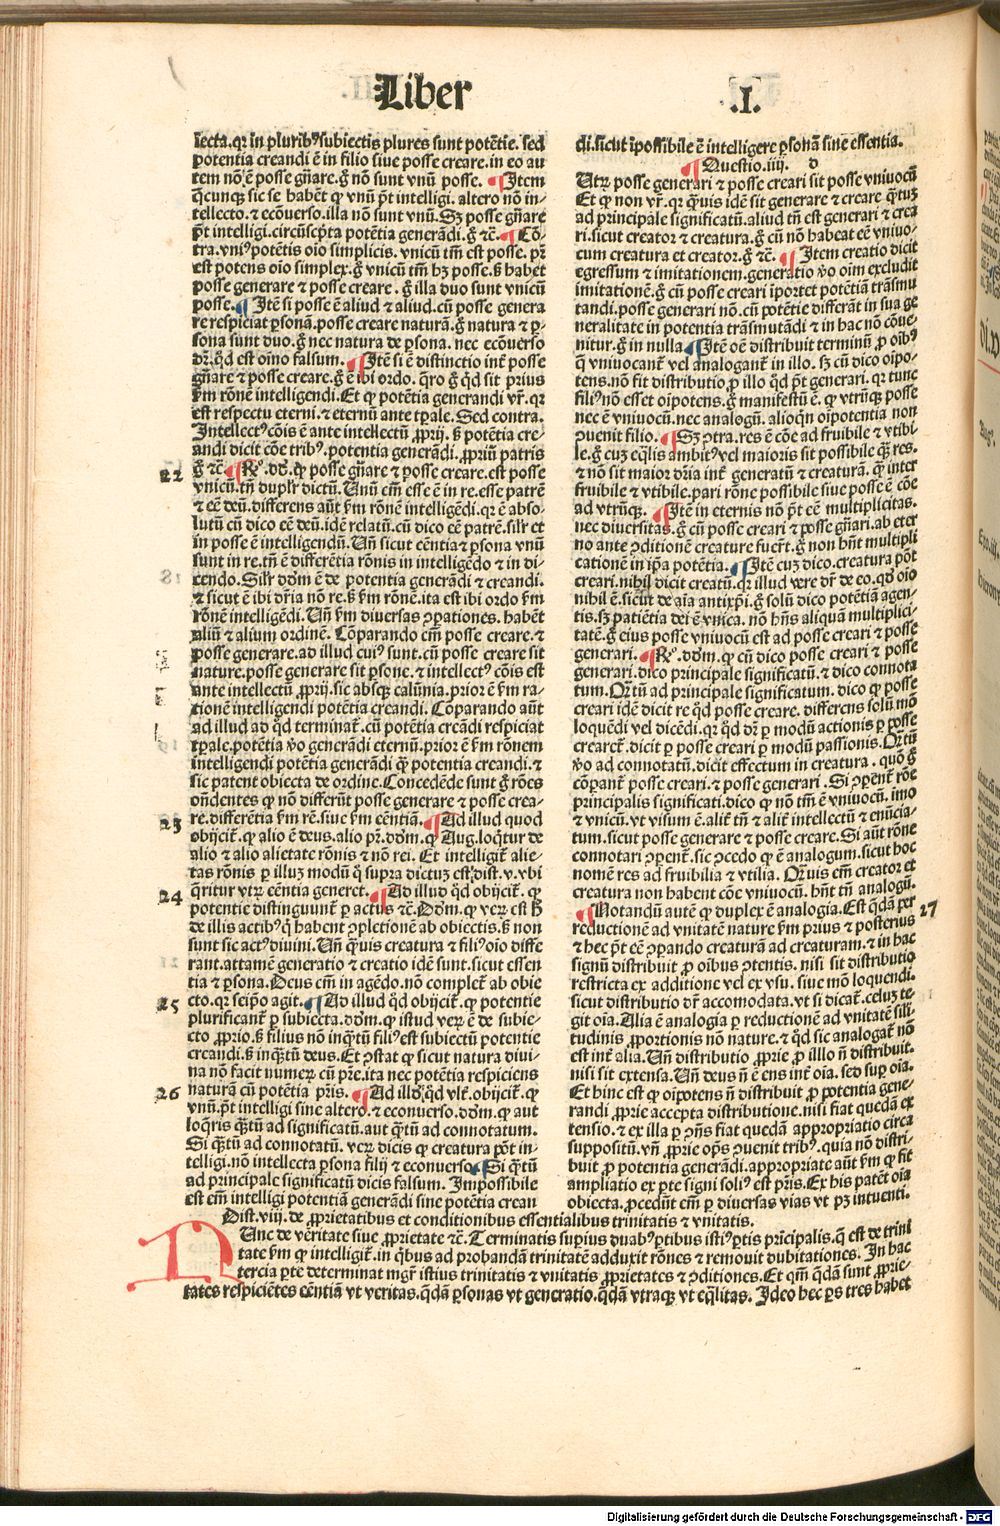 Liber .I.
iecta.qr in pluribꝰ subiectis plures sunt potētie. sed
potentia creandi ē in filio siue posse creare. in eo au
tem nō ē posse gn̄are.gͦ nō sunt vnū posse. ¶ Itē
q̄cunqꝫ sic se habēt ꝙ vnū pn̄t intelligi. altero nō in⸗
tellecto. ⁊ ecōuerso. illa nō sunt vnū. Sꝫ posse gn̄are
pn̄t intelligi.circūscp̄ta potētia generādi.gͦ ⁊c̄. ¶ Cō
tra.vniꝰ potētis oīo simplicis. vnicū tm̄ est posse. pr̄
est potens oīo simplex.gͦ vnicū tm̄ hꝫ posse.ß habēt
posse generare ⁊ posse creare. gͦ illa duo sunt vnicū
posse. ¶ Itē si posse ē aliud ⁊ aliud.cū posse genera
re respiciat ꝑsonā.posse creare naturā.gͦ natura ⁊ ꝑ⸗
sona sunt duo.gͦ nec natura de ꝑsona. nec ecōuerso
dr̄.qd̄ est oīno falsum. ¶ Itē si ē distinctio int̄ posse
gn̄are ⁊ posse creare.gͦ ē ibi ordo. qr̄o gͦ qd̄ sit prius
ẜm rōnē intelligendi. Et ꝙ potētia generandi vr̄. qr
est respectu eterni. ⁊ eternū ante tꝑale. Sed contra.
Intellectꝰ cōis ē ante intellectū ꝓprij. ß potētia cre⸗
andi dicit cōe tribꝰ. potentia generādi. ꝓpriū patris
22 gͦ ⁊c̄. ¶ Rͦ. dd̄. ꝙ posse gn̄are ⁊ posse creare.est posse
vnicū.tn̄ duplr̄ dictū. Vnū em̄ esse ē in re.esse patrē
⁊ eē deū. differens aūt ẜm rōnē intelligēdi.qr ē abso⸗
lutū cū dico eē deū.idē relatū.cū dico eē patrē.silr̄ et
in posse ē intelligendū. Vn̄ sicut eēntia ⁊ ꝑsona vnū
sunt in re.tn̄ ē differētia rōnis in intelligēdo ⁊ in di⸗
cendo. Silr̄ dd̄m ē de potentia generādi ⁊ creandi.
⁊ sicut ē ibi dr̄ia nō re.ß ẜm rōnē.ita est ibi ordo ẜm
rōnē intelligēdi. Vn̄ ẜm diuersas ↄparationes. habēt
aliū ⁊ alium ordinē. Cōparando em̄ posse creare. ⁊
posse generare.ad illud cuiꝰ sunt.cū posse creare sit
nature.posse generare sit ꝑsone. ⁊ intellectꝰ cōis est
ante intellectū ꝓprij.sic absqꝫ calūnia.prior ē ẜm ra⸗
tionē intelligendi potētia creandi. Cōparando aūt
ad illud ad qd̄ terminat̄. cū potētia creādi respiciat
tꝑale.potētia v̄o generādi eternū.prior ē ẜm rōnem
intelligendi potētia generādi qꝫ potentia creandi. ⁊
sic patent obiecta de ordine. Concedēde sunt gͦ rōes
on̄dentes ꝙ nō differūt posse generare ⁊ posse crea⸗
23 re.differētia ẜm rē.siue ẜm eēntiā. ¶ Ad illud quod
obijcit̄. ꝙ alio ē deus.alio pr̄.dd̄m. ꝙ Aug.loqt̄ur de
alio ⁊ alio alietate rōnis ⁊ nō rei. Et intelligit̄ alie⸗
tas rōnis ꝑ illuꝫ modū q̄ supra dictuꝫ est.dist.v.vbi
24 q̄ritur vtꝝ eēntia generet. ¶ Ad illud qd̄ obijcit̄. ꝙ
potentie distinguunt̄ ꝑ actus ⁊c̄.Dd̄m. ꝙ veꝝ est ß
de illis actibꝰ q̄ habent ↄpletionē ab obiectis.ß non
sunt sic actꝰ diuini. Vn̄ q̄uis creatura ⁊ filiꝰ oīo diffe
rant.attamē generatio ⁊ creatio idē sunt.sicut essen
tia ⁊ ꝑsona. Deus em̄ in agēdo.nō complet̄ ab obie
25 cto.qr seip̄o agit. ¶ Ad illud qd̄ obijcit̄. ꝙ potentie
plurificant̄ ꝑ subiecta.dd̄m. ꝙ istud veꝝ ē de subie⸗
cto ꝓprio.ß filius nō inq̄tū filiꝰ est subiectū potentie
creandi.ß inq̄tū deus. Et ↄstat ꝙ sicut natura diui⸗
na nō facit numeꝝ cū pr̄e.ita nec potētia respiciens
26 naturā cū potētia pr̄is. ¶ Ad illd̄.qd̄ vlt̄.obijcit̄. ꝙ
vnū.pn̄t intelligi sine altero. ⁊ econuerso.dd̄m. ꝙ aut
loq̄ris q̄tū ad significatū.aut q̄tū ad connotatum.
Si q̄tū ad connotatū. veꝝ dicis ꝙ creatura pōt in⸗
telligi.nō intellecta ꝑsona filij ⁊ econuerso. ¶ Si q̄tū
ad principale significatū dicis falsum. Impossibile
est em̄ intelligi potentiā generādi sine potētia crean
di.sicut īpossibile ē intelligere ꝑsonā sine essentia.
¶ Questio.iiij. d
Utꝝ posse generari ⁊ posse creari sit posse vniuocū
Et ꝙ non vr̄.qr q̄uis idē sit generare ⁊ creare q̄tuꝫ
ad principale significatū.aliud tn̄ est generari ⁊ crea
ri.sicut creator ⁊ creatura.gͦ cū nō habeat eē vniuo⸗
cum creatura et creator.gͦ ⁊c̄. ¶ Item creatio dicit
egressum ⁊ imitationem.generatio v̄o oīm excludit
imitationē.gͦ cū posse creari īportet potētiā trāsmu
tandi.posse generari nō.cū potētie differāt in sua ge
neralitate in potentia trāsmutādi ⁊ in hac nō cōue⸗
nitur.gͦ in nulla. ¶ Itē oē distribuit terminū ꝓ oībꝰ
q̄ vniuocant̄ vel analogant̄ in illo. sꝫ cū dico oīpo⸗
tens.nō fit distributio ꝓ illo qd̄ pn̄t generari. qr tunc
filiꝰ nō esset oīpotens.gͦ manifestū ē. ꝙ vtrūqꝫ posse
nec ē vniuocū.nec analogū. alioqn̄ oīpotentia non
ↄuenit filio. ¶ Sꝫ ↄtra.res ē cōe ad fruibile ⁊ vtibi⸗
le.gͦ cuꝫ eq̄lis ambitꝰ vel maioris sit possibile qꝫ res.
⁊ nō sit maior dr̄ia int̄ generatū ⁊ creaturā. ꝙ inter
fruibile ⁊ vtibile.pari rōne possibile siue posse ē cōe
ad vtrūqꝫ. ¶ Itē in eternis nō pn̄t eē multiplicitas.
nec diuersitas.gͦ cū posse creari ⁊ posse gn̄ari.ab eter
no ante ↄditionē creature fuer̄t.gͦ non hn̄t multipli
cationē in ip̄a potētia. ¶ Itē cuꝫ dico.creatura pōt
creari.nihil dicit creatū.qr illud vere dr̄ de eo.qd̄ oīo
nihil ē.sicut de aīa antixp̄i.gͦ solū dico potētiā agen⸗
tis.sꝫ patiētia dei ē vnica. nō hn̄s aliquā multiplici⸗
tatē.gͦ eius posse vniuocū est ad posse creari ⁊ posse
generari. ¶ Rͦ.dd̄m. ꝙ cū dico posse creari ⁊ posse
generari.dico principale significatū. ⁊ dico connota
tum. Q̄ꝛtū ad principale significatum. dico ꝙ posse
creari idē dicit re qd̄ posse creare. differens solū mō
loquēdi vel dicēdi.qr qd̄ dr̄ ꝑ modū actionis ꝑ posse
creare.t̄ dicit ꝑ posse creari ꝑ modū passionis. Q̄ꝛtū
v̄o ad connotatū.dicit effectum in creatura. quō gͦ
cōparant̄ posse creari. ⁊ posse generari. Si ↄpent̄ rōe
principalis significati.dico ꝙ nō tm̄ ē vniuocū. imo
⁊ vnicū. vt visum ē.alit̄ tn̄ ⁊ alit̄ intellectū ⁊ enūcia⸗
tum.sicut posse generare ⁊ posse creare. Si aūt rōne
connotari ↄpent̄.sic ↄcedo ꝙ ē analogum.sicut hoc
nomē res ad fruibilia ⁊ vtilia. Q̄ꝛuis em̄ creator et
creatura non habent cōe vniuocū. hn̄t tn̄ analogū.
¶ Notandū autē ꝙ duplex ē analogia. Est q̄dā per 27
reductionē ad vnitatē nature ẜm prius ⁊ posterius
⁊ hec pn̄t eē ↄpando creaturā ad creaturam. ⁊ in hac
signū distribuit ꝓ oībus ↄtentis. nisi sit distributio
restricta ex additione vel ex vsu. siue mō loquendi.
sicut distributio dr̄ accomodata. vt si dicat̄. celuꝫ te⸗
git oīa. Alia ē analogia ꝑ reductionē ad vnitatē sili
tudinis ꝓportionis nō nature. ⁊ qd̄ sic analogat̄ nō
est int̄ alia. Vn̄ distributio ꝓprie ꝓ illo n̄ distribuit.
nisi sit extensa. Vn̄ deus n̄ ē ens int̄ oīa. sed suꝑ oīa.
Et hinc est ꝙ oīpotens n̄ distribuit ꝓ potentia gene⸗
randi ꝓprie accepta distributione.nisi fiat quedā ex
tensio. ⁊ ex illa ꝑ ↄn̄s fiat quedā appropriatio circa
suppositū. vn̄ ꝓprie oīps ↄuenit tribꝰ. quia nō distri⸗
buit ꝓ potentia generādi.appropriate aūt ẜm ꝙ fit
ampliatio ex ꝑte signi soliꝰ est pr̄is. Ex his patēt oīa
obiecta. ꝓcedūt em̄ ꝑ diuersas vias vt pꝫ intuenti.
Dist.viij. de ꝓprietatibus et conditionibus essentialibus trinitatis ⁊ vnitatis.
NUnc de veritate siue ꝓprietate ⁊c̄. Terminatis suꝑius duabꝰ ꝑtibus istiꝰ ꝑtis prīcipalis. q̄ est de trini
tate ẜm ꝙ intelligit̄. in qbus ad probandā trinitatē adduxit rōnes ⁊ remouit dubitationes. In hac
tercia ꝑte determinat mgr̄ istius trinitatis ⁊ vnitatis ꝓprietates ⁊ ↄditiones. Et qm̄ q̄dā sunt ꝓprie⸗
tates respiciētes eēntiā vt veritas.q̄dā ꝑsonas vt generatio.q̄dā vtraqꝫ vt eq̄litas. Ideo hec ꝑs tres habet
Digitalisierung gefördert durch die Deutsche Forschungsgemeinschaft - DFG